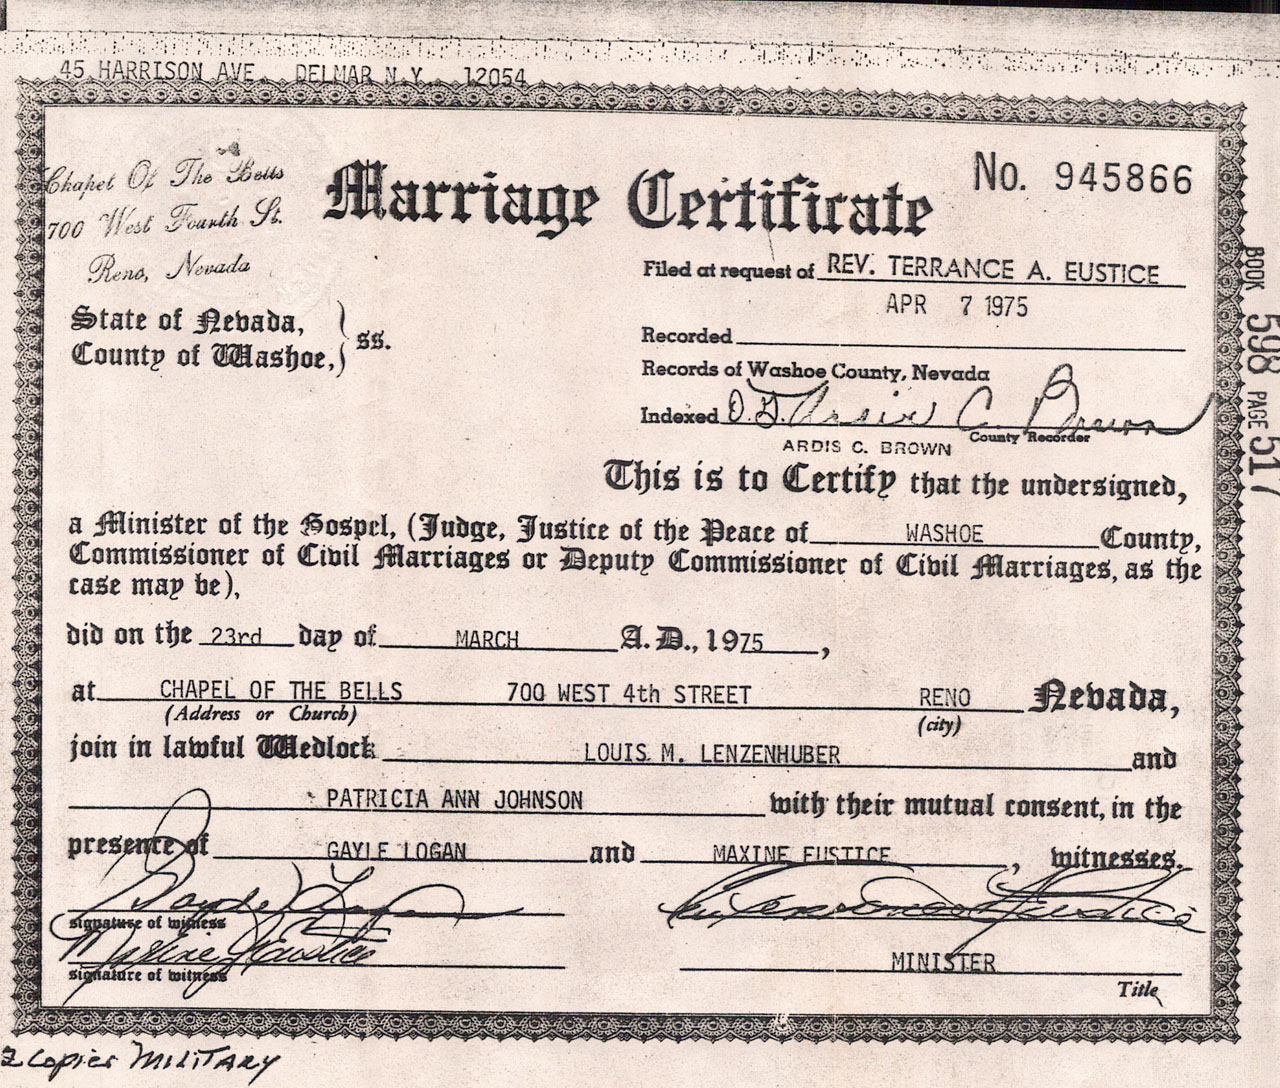 45 HARRISON AVE. DELMAR N.Y. 12054
Chapel Of The Bells
700 West Fourth St.
Reno, Nevada
Marriage Certificate
No. 945866
Filed at request of REV. TERRANCE A. EUSTICE
APR 7 1975
State of Nevada,
County of Washoe, } ss.
Recorded
Records of Washoe County, Nevada
Indexed D.G. Ardis C. Brown
ARDIS C. BROWN County Recorder
BOOK 598 PAGE 517
This is to Certify that the undersigned,
a Minister of the Gospel, (Judge, Justice of the Peace of WASHOE County,
Commissioner of Civil Marriages or Deputy Commissioner of Civil Marriages, as the
case may be),
did on the 23rd day of MARCH A.D., 1975,
at CHAPEL OF THE BELLS 700 WEST 4th STREET RENO Nevada,
(Address or Church) (city)
join in lawful Wedlock LOUIS M. LENZENHUBER and
PATRICIA ANN JOHNSON with their mutual consent, in the
presence of GAYLE LOGAN and MAXINE EUSTICE, witnesses.
Gayle Logan
signature of witness
Maxine Eustice
signature of witness
Rev Terrance A Eustice
MINISTER
Title
2 copies MILITARY